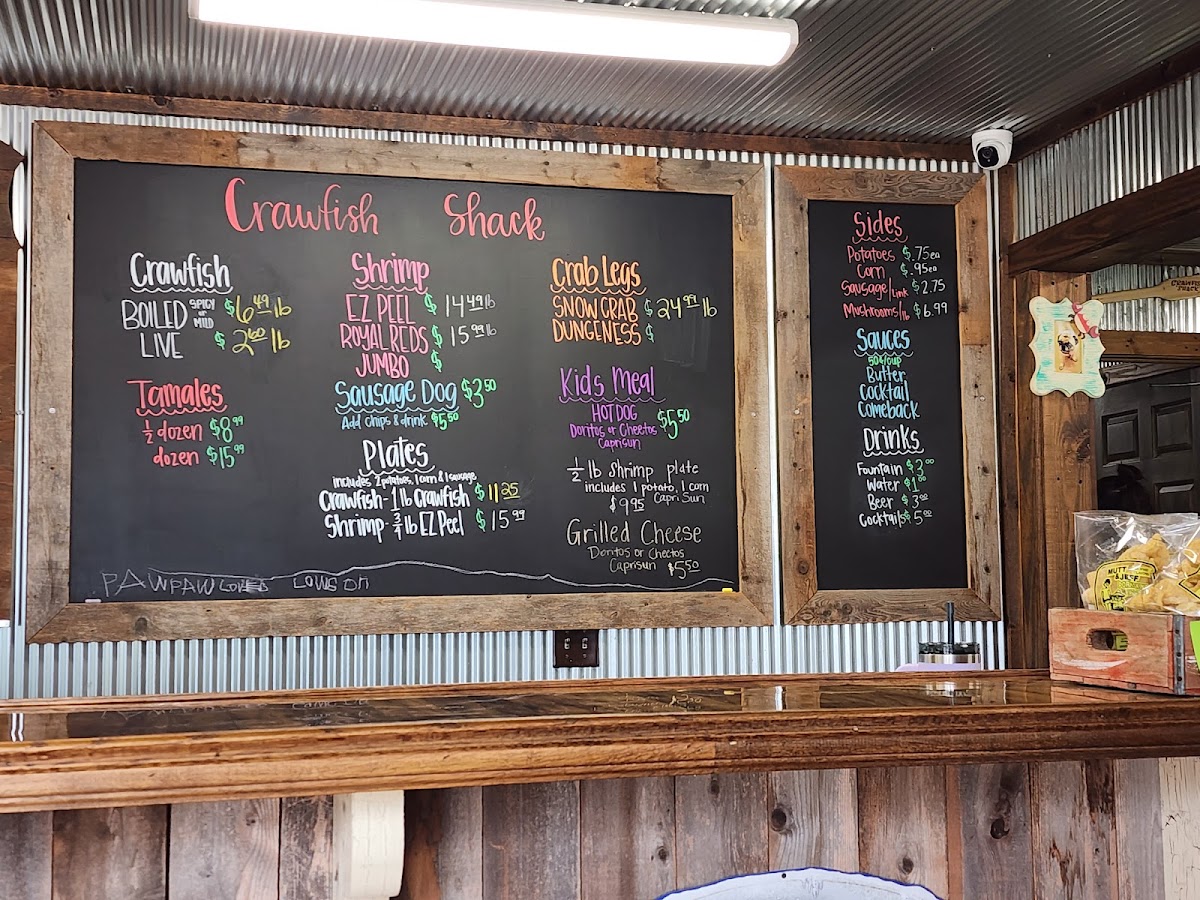 Crawfish Shack
Crawfish
BOILED SPICY or MILD $6.49 lb
LIVE $2.60 lb
Tamales
1/2 dozen $8.99
dozen $15.99
Shrimp
EZ PEEL $14.49 lb
ROYAL REDS $15.99 lb
JUMBO $
Sausage Dog $3.50
Add chips & drink $5.50
Plates
includes 2 potatoes, 1 corn & 1 sausage
Crawfish - 1 lb Crawfish $11.25
Shrimp - 3/4 lb EZ Peel $15.99
Crab Legs
SNOW CRAB $24.99 lb
DUNGENESS $
Kids Meal
HOT DOG
Doritos or Cheetos
Caprisun
$5.50
1/2 lb Shrimp plate
includes 1 potato, 1 corn
Capri Sun
$9.95
Grilled Cheese
Doritos or Cheetos
Caprisun $5.50
PAWPAW LOVES
Sides
Potatoes $.75 ea
Corn $.95 ea
Sausage/Link $2.75
Mushrooms/lb $6.99
Sauces
50¢/cup
Butter
Cocktail
Comeback
Drinks
Fountain $3.00
Water $1.00
Beer $3.00
Cocktails $5.00
CRAWFISH
SHACK
MUTT
& JEFF